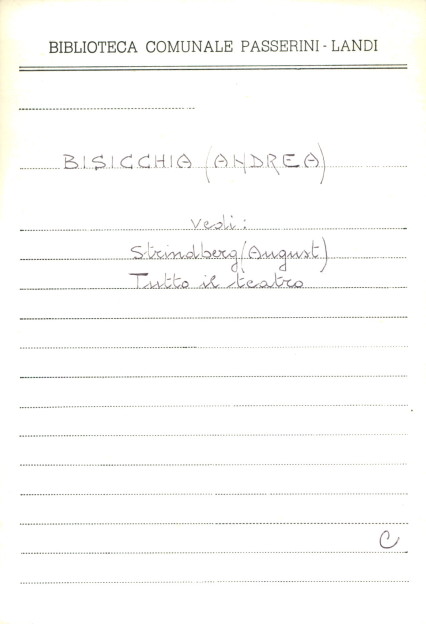 BIBLIOTECA COMUNALE PASSERINI - LANDI
BISICCHIA (ANDREA)
Vedi:
Strindberg (August)
Tutto il teatro
C